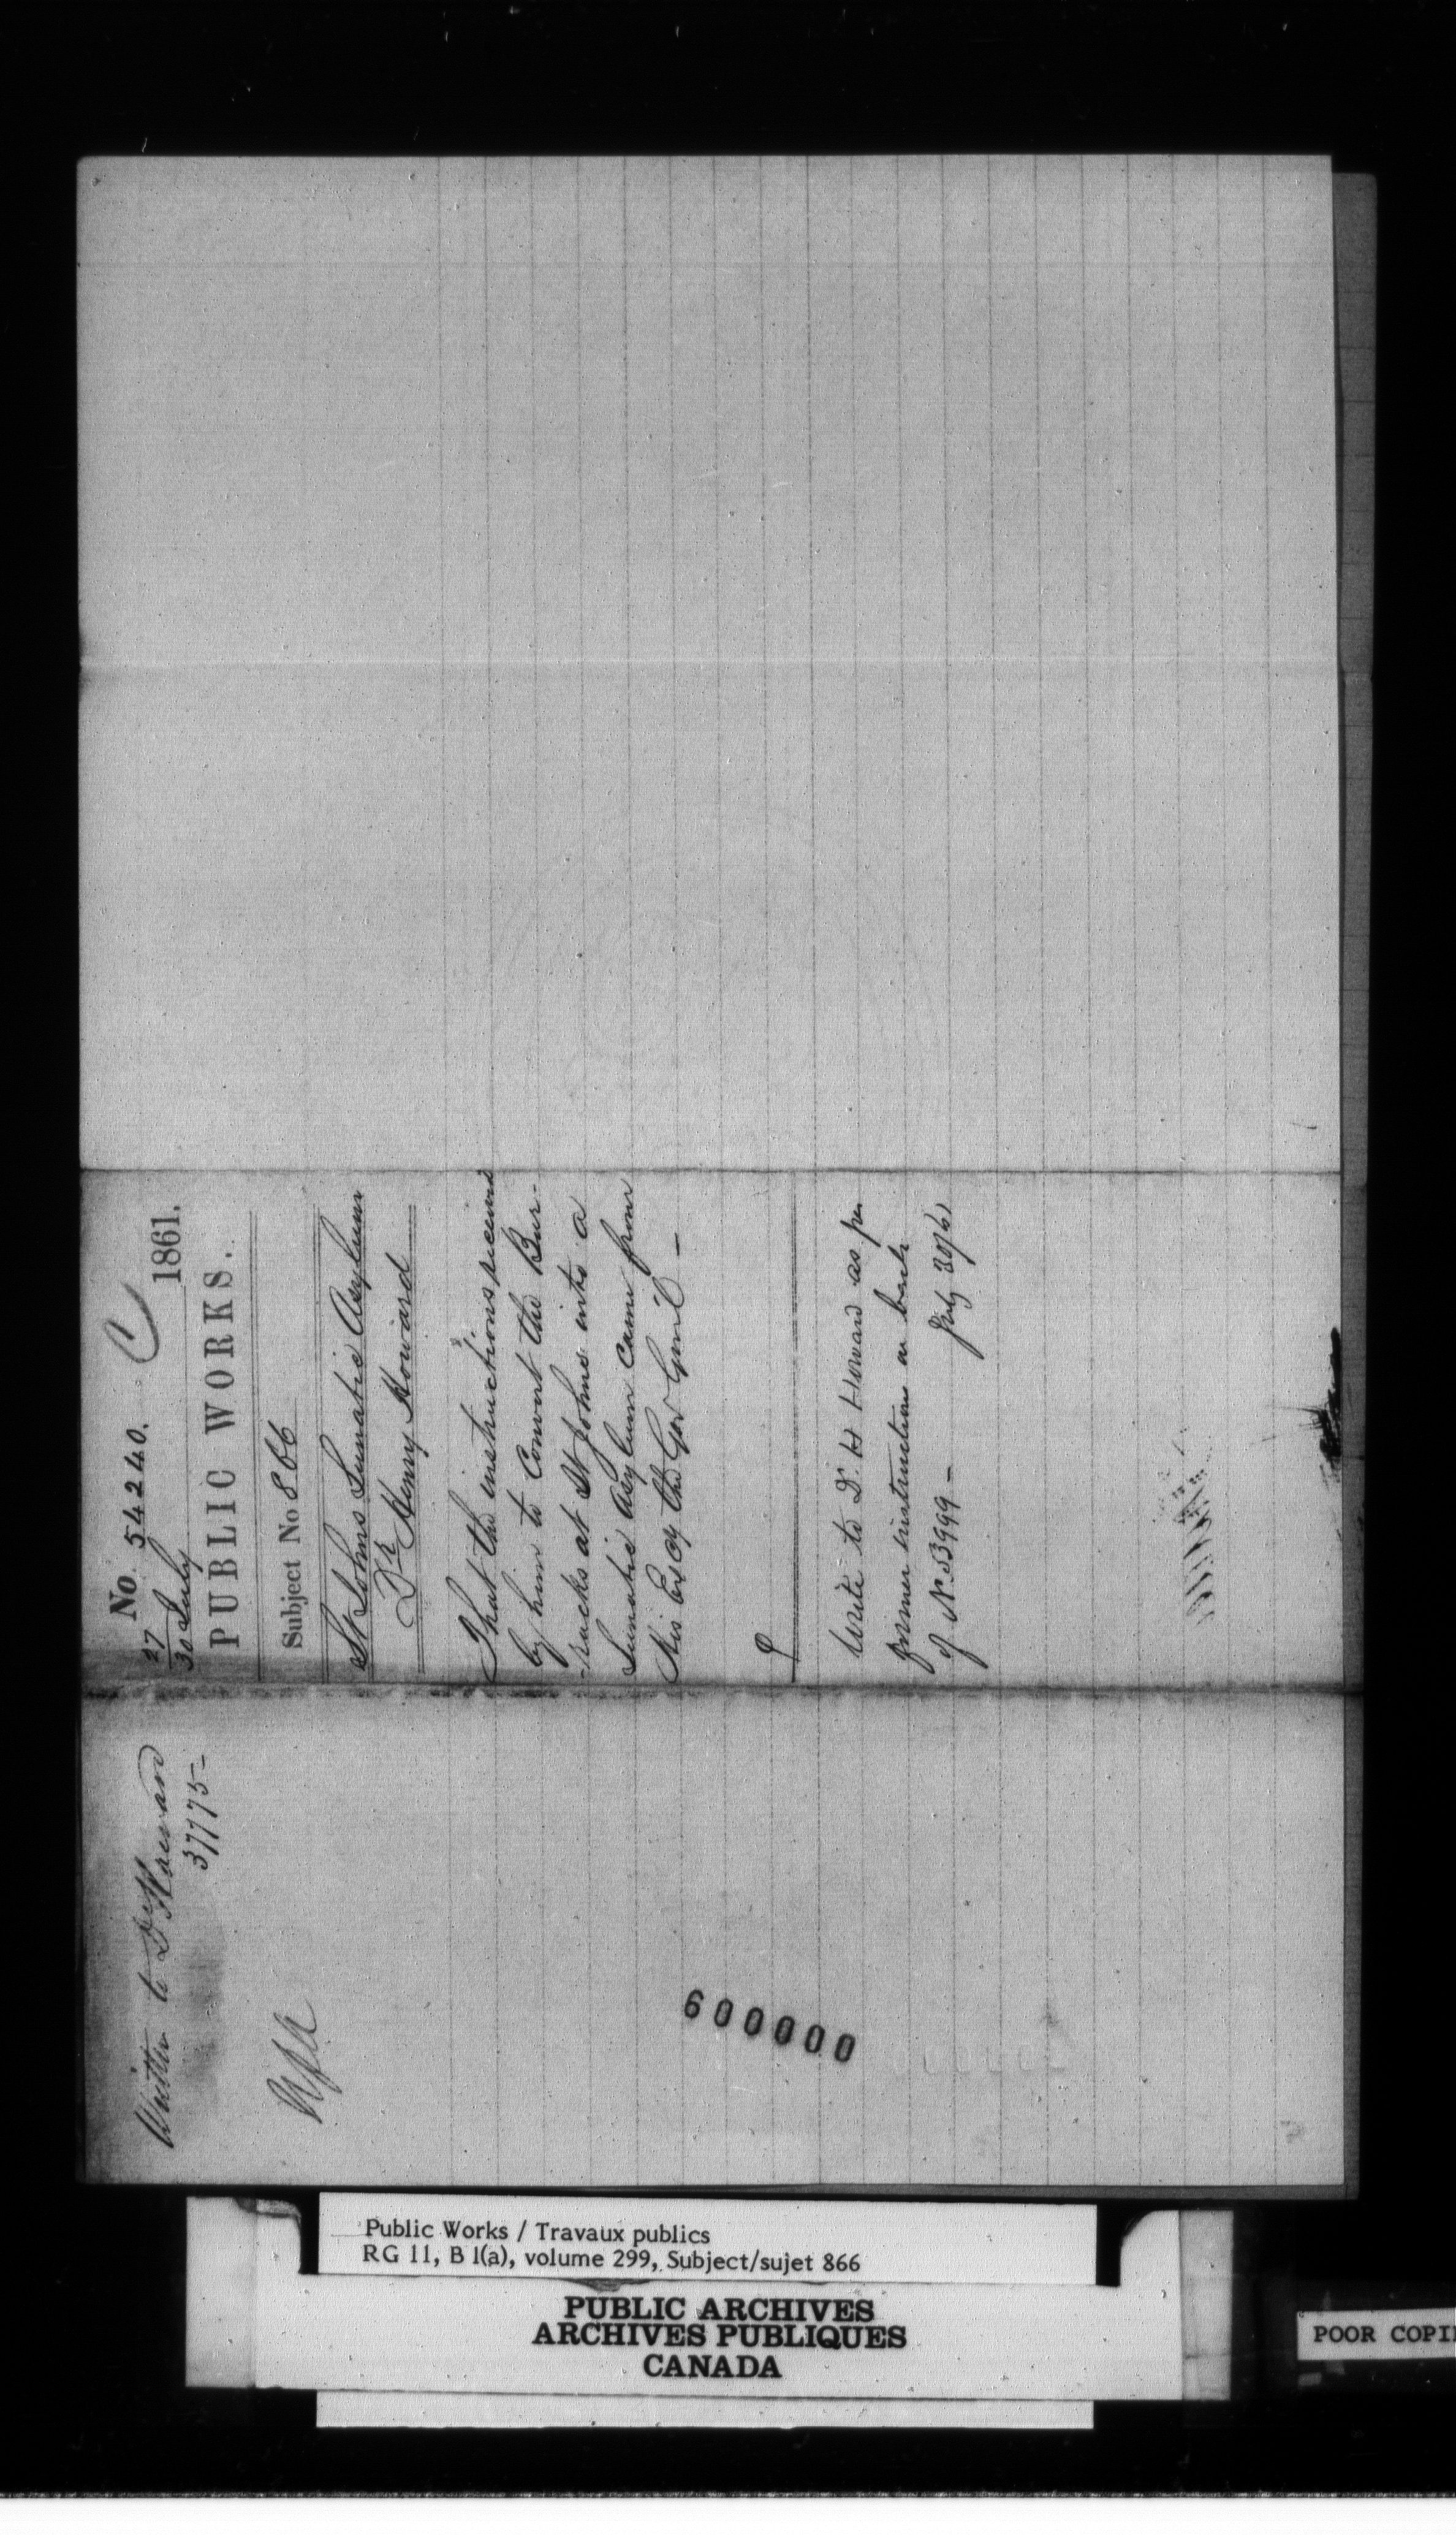 No 54240. C
27
30 July 1861.
PUBLIC WORKS.
Subject No 866
St Johns Lunatic Asylum
Dr Henry Howard
That the instructions received
by him to Convert the Bar-
-racks at St Johns into a
Lunatic Asylum came from
His Excy the Gov Genl —
Write to Dr H Howard as per
former instruction on back
of No 53999 —
July 30/61
Written to Dr Howard
37775 —
600000
Public Works / Travaux publics
RG 11, B 1(a), volume 299, Subject/sujet 866
PUBLIC ARCHIVES
ARCHIVES PUBLIQUES
CANADA
POOR COPI